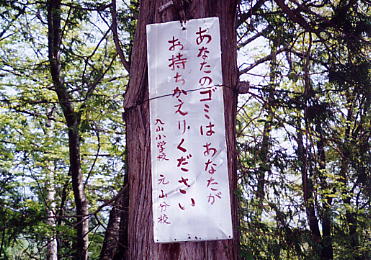 あなたのゴミはあなたが
お持ちかえりください
入山小学校 元山分校